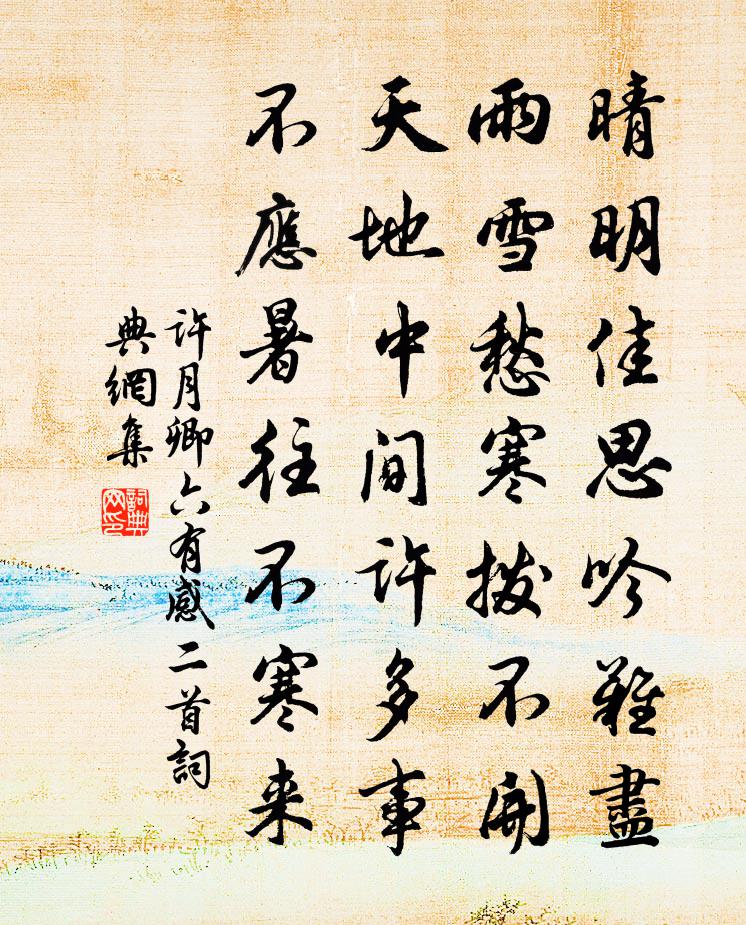 晴明佳思吟難盡
雨雪愁寒撥不開
天地中間許多事
不應暑往不寒来
许月卿六有感二首詞
典網集
詞典
网印